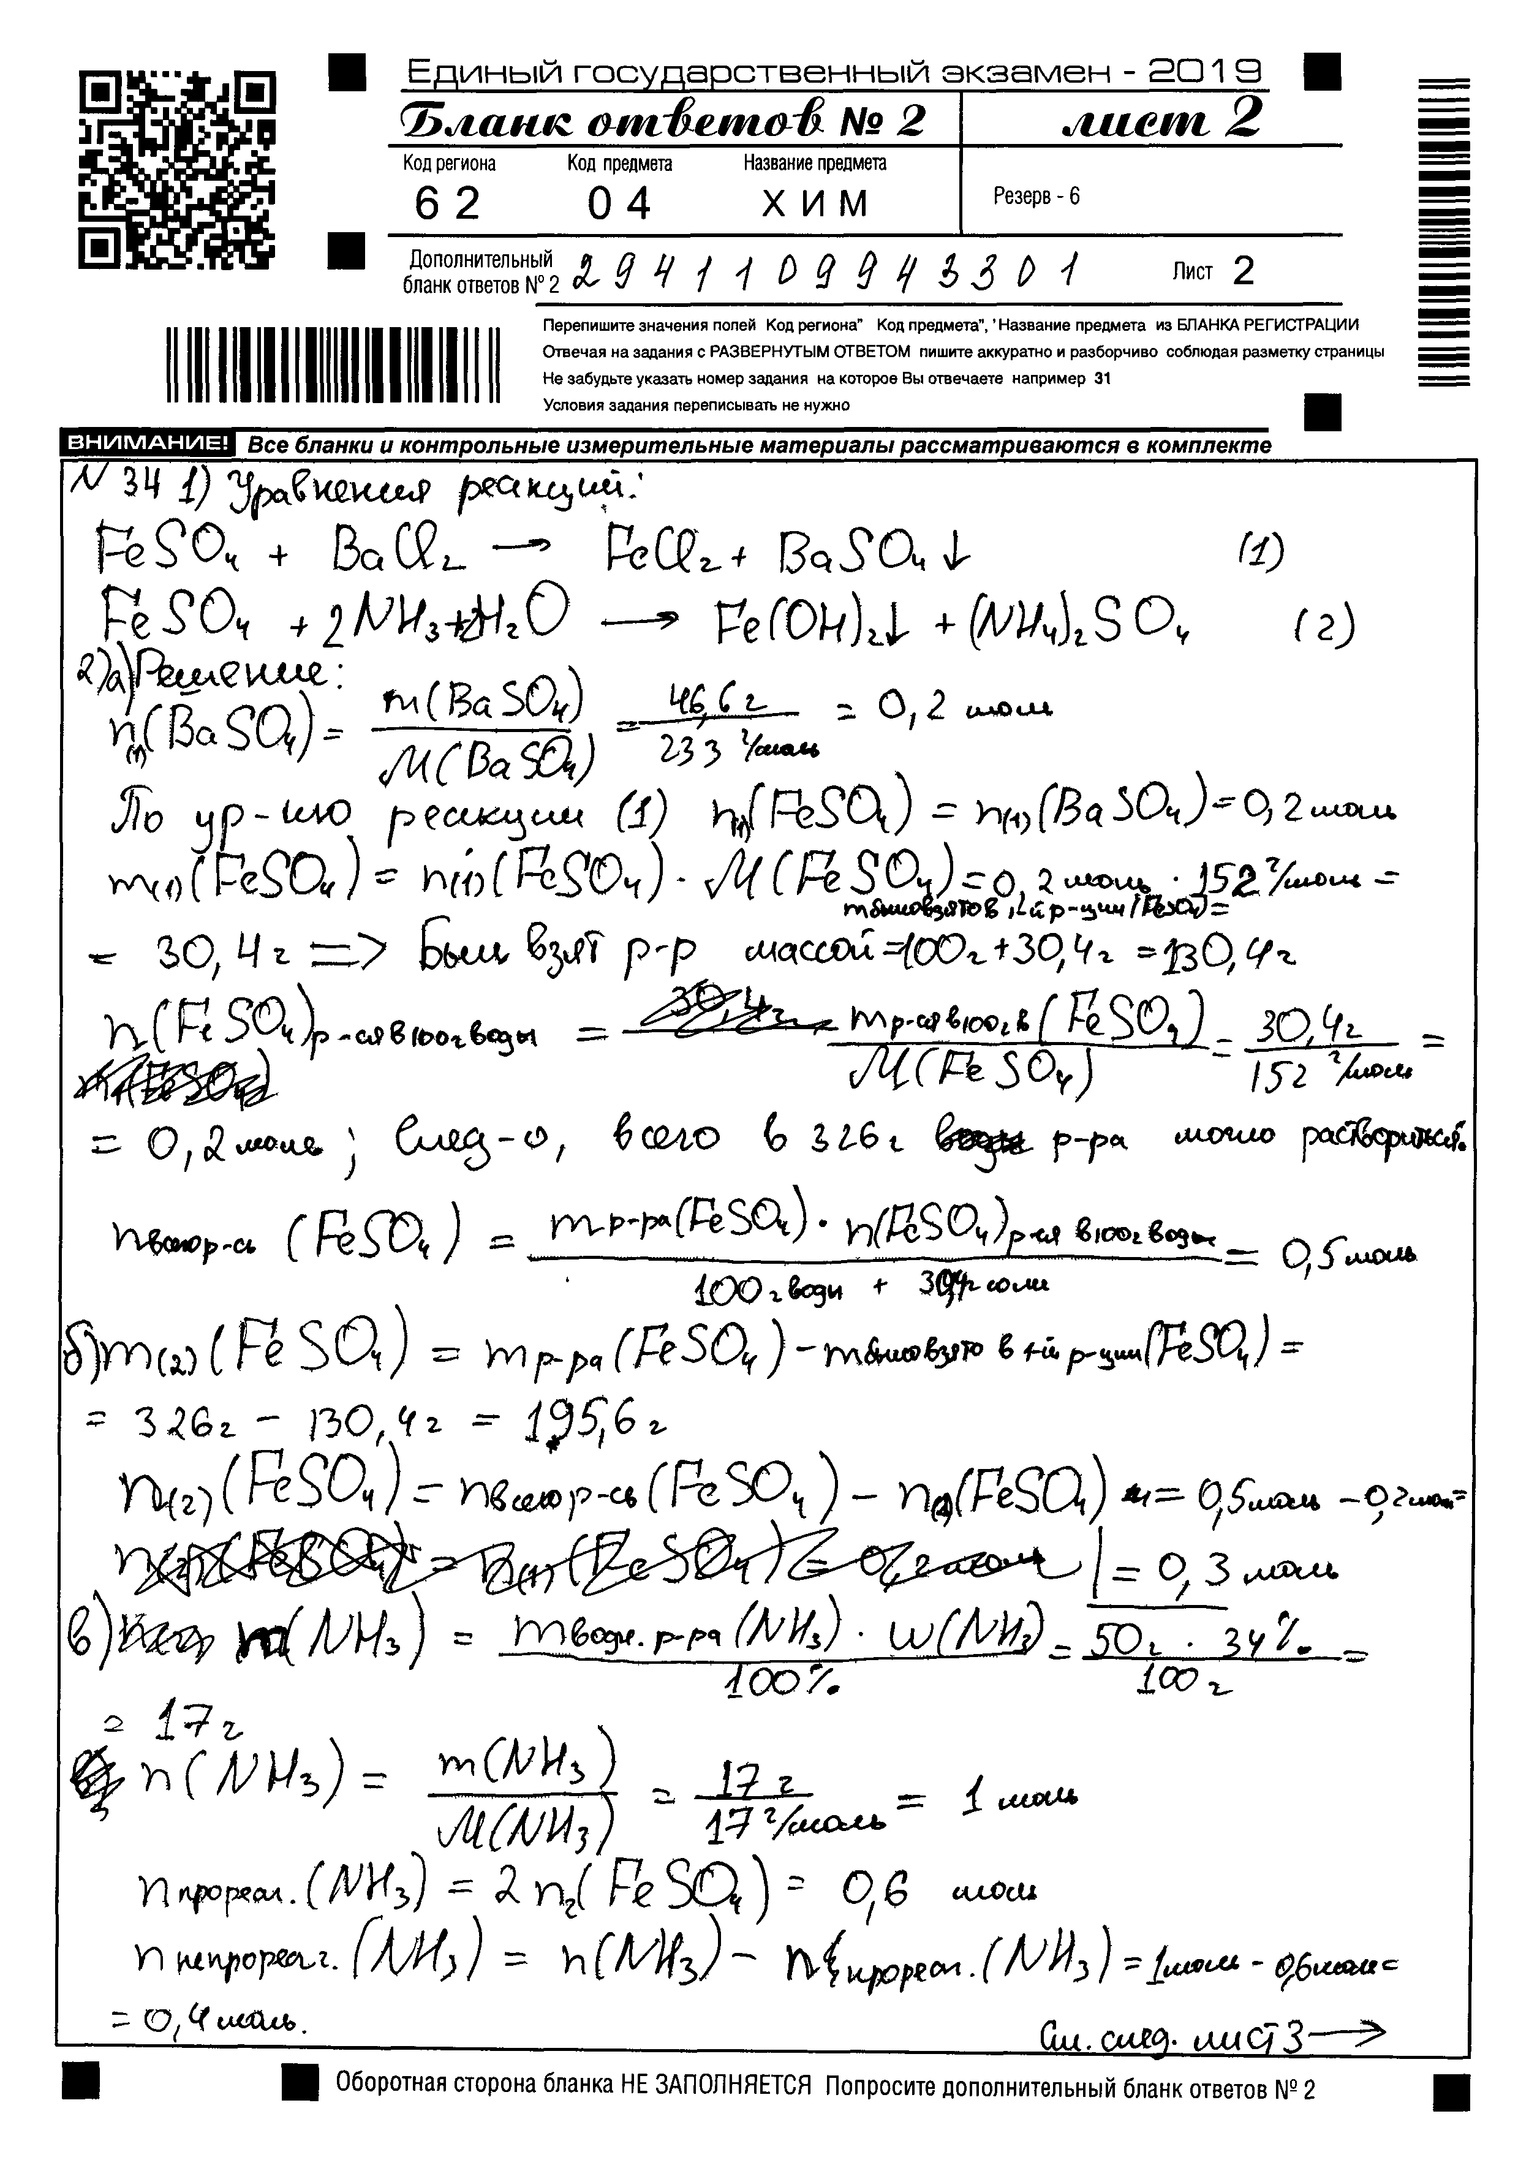 Единый государственный экзамен - 2019
Бланк ответов № 2 лист 2
Код региона Код предмета Название предмета
62 04 ХИМ Резерв - 6
Дополнительный бланк ответов № 2 2941109943301 Лист 2
Перепишите значения полей Код региона" Код предмета", 'Название предмета из БЛАНКА РЕГИСТРАЦИИ
Отвечая на задания с РАЗВЕРНУТЫМ ОТВЕТОМ пишите аккуратно и разборчиво соблюдая разметку страницы
Не забудьте указать номер задания на которое Вы отвечаете например 31
Условия задания переписывать не нужно
ВНИМАНИЕ! Все бланки и контрольные измерительные материалы рассматриваются в комплекте
N 34 1) Уравнения реакций:
FeSO₄ + BaCl₂ → FeCl₂ + BaSO₄↓ (1)
FeSO₄ + 2NH₃ + 2H₂O → Fe(OH)₂↓ + (NH₄)₂SO₄ (2)
2)а) Решение:
n₍₁₎(BaSO₄) = m(BaSO₄) / M(BaSO₄) = 46,6 г / 233 г/моль = 0,2 моль
По ур-ию реакции (1) n₍₁₎(FeSO₄) = n₍₁₎(BaSO₄) = 0,2 моль
m₍₁₎(FeSO₄) = n₍₁₎(FeSO₄) · M(FeSO₄) = 0,2 моль · 152 г/моль =
m было взято в 1-й р-ции (FeSO₄) =
= 30,4 г => Был взят р-р массой = 100 г + 30,4 г = 130,4 г
n(FeSO₄) р-ся в 100 г воды = m р-ся в 100 г в (FeSO₄) / M(FeSO₄) = 30,4 г / 152 г/моль =
= 0,2 моль; след-о, всего в 326 г р-ра могло раствориться:
n всего р-сь (FeSO₄) = m р-ра (FeSO₄) · n(FeSO₄) р-ся в 100 г воды / 100 г воды + 30,4 г соли = 0,5 моль
б) m₍₂₎(FeSO₄) = m р-ра (FeSO₄) − m было взято в 1-й р-ции (FeSO₄) =
= 326 г − 130,4 г = 195,6 г
n₍₂₎(FeSO₄) = n всего р-сь (FeSO₄) − n₍₁₎(FeSO₄) = 0,5 моль − 0,2 моль =
= 0,3 моль
в) m(NH₃) = m водн. р-ра (NH₃) · w(NH₃) / 100% = 50 г · 34% / 100 г =
= 17 г
n(NH₃) = m(NH₃) / M(NH₃) = 17 г / 17 г/моль = 1 моль
n прореаг. (NH₃) = 2n₂(FeSO₄) = 0,6 моль
n непрореаг. (NH₃) = n(NH₃) − n прореаг. (NH₃) = 1 моль − 0,6 моль =
= 0,4 моль.
См. след. лист 3 →
Оборотная сторона бланка НЕ ЗАПОЛНЯЕТСЯ Попросите дополнительный бланк ответов № 2